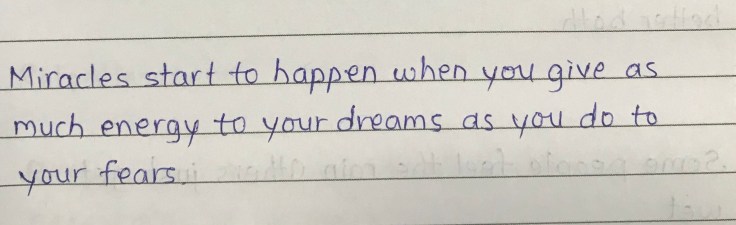 Miracles start to happen when you give as
much energy to your dreams as you do to
your fears.